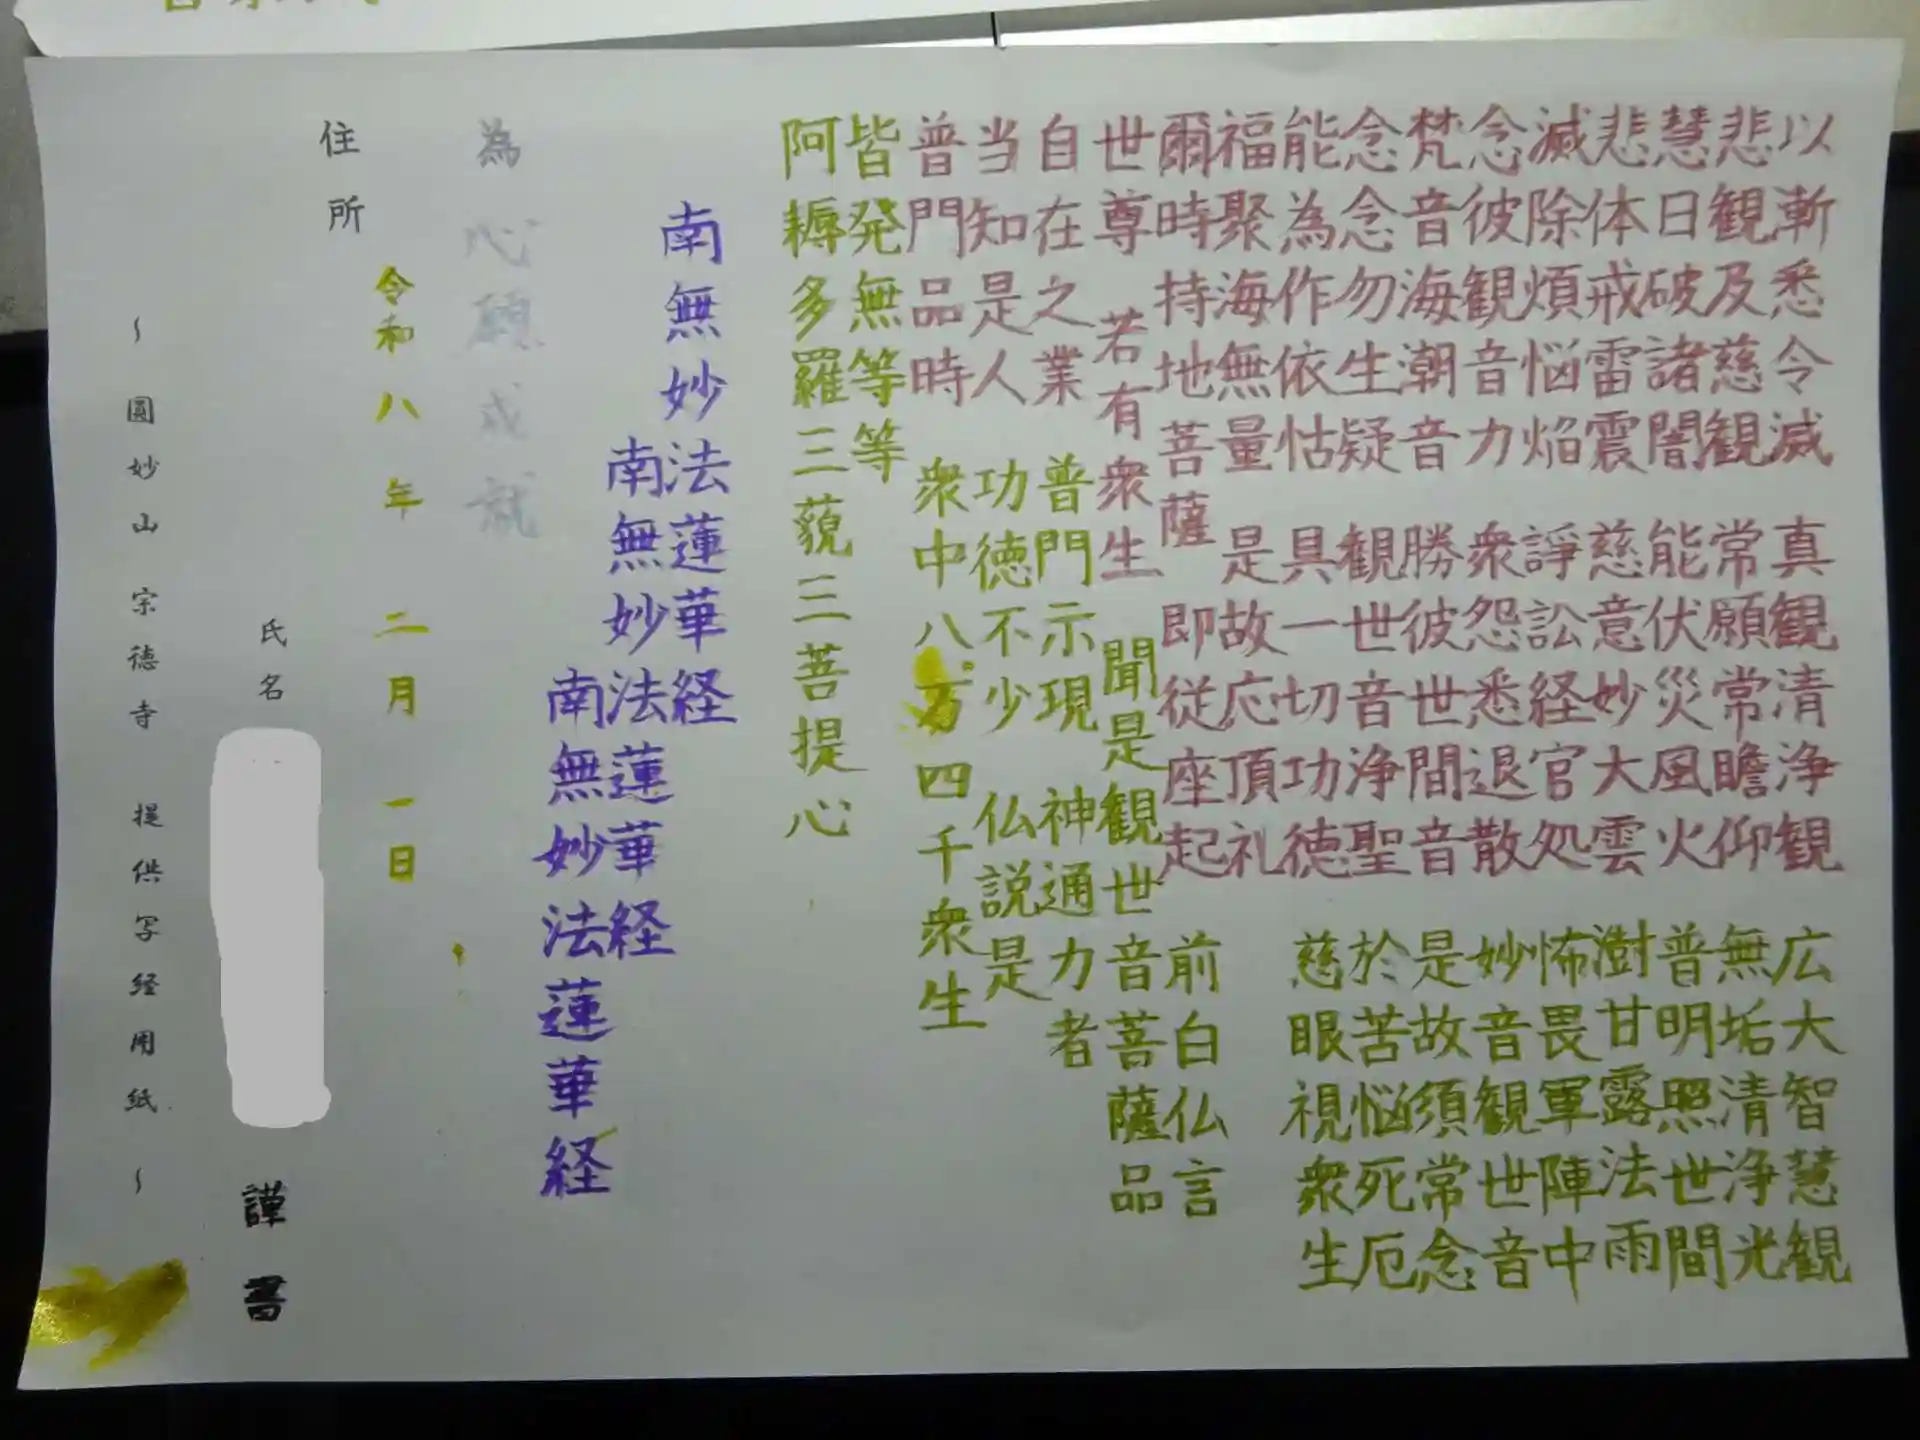 以漸悉令滅 真観清浄観 広大智慧観
悲観及慈観 常願常瞻仰 無垢清浄光
慧日破諸闇 能伏災風火 普明照世間
悲体戒雷震 慈意妙大雲 澍甘露法雨
滅除煩悩焔 諍訟経官処 怖畏軍陣中
念彼観音力 衆怨悉退散 妙音観世音
梵音海潮音 勝彼世間音 是故須常念
念念勿生疑 観世音浄聖 於苦悩死厄
能為作依怙 具一切功徳 慈眼視衆生
福聚海無量 是故応頂礼
爾時持地菩薩 即従座起 前白仏言
世尊 若有衆生 聞是観世音菩薩品
自在之業 普門示現 神通力者
当知是人 功徳不少 仏説是
普門品時 衆中八万四千衆生
皆発無等等
阿耨多羅三藐三菩提心
南無妙法蓮華経
南無妙法蓮華経
南無妙法蓮華経
為 心願成就
令和八年 二月 一日
住所
氏名 謹書
~圓妙山 宗徳寺 提供写経用紙~